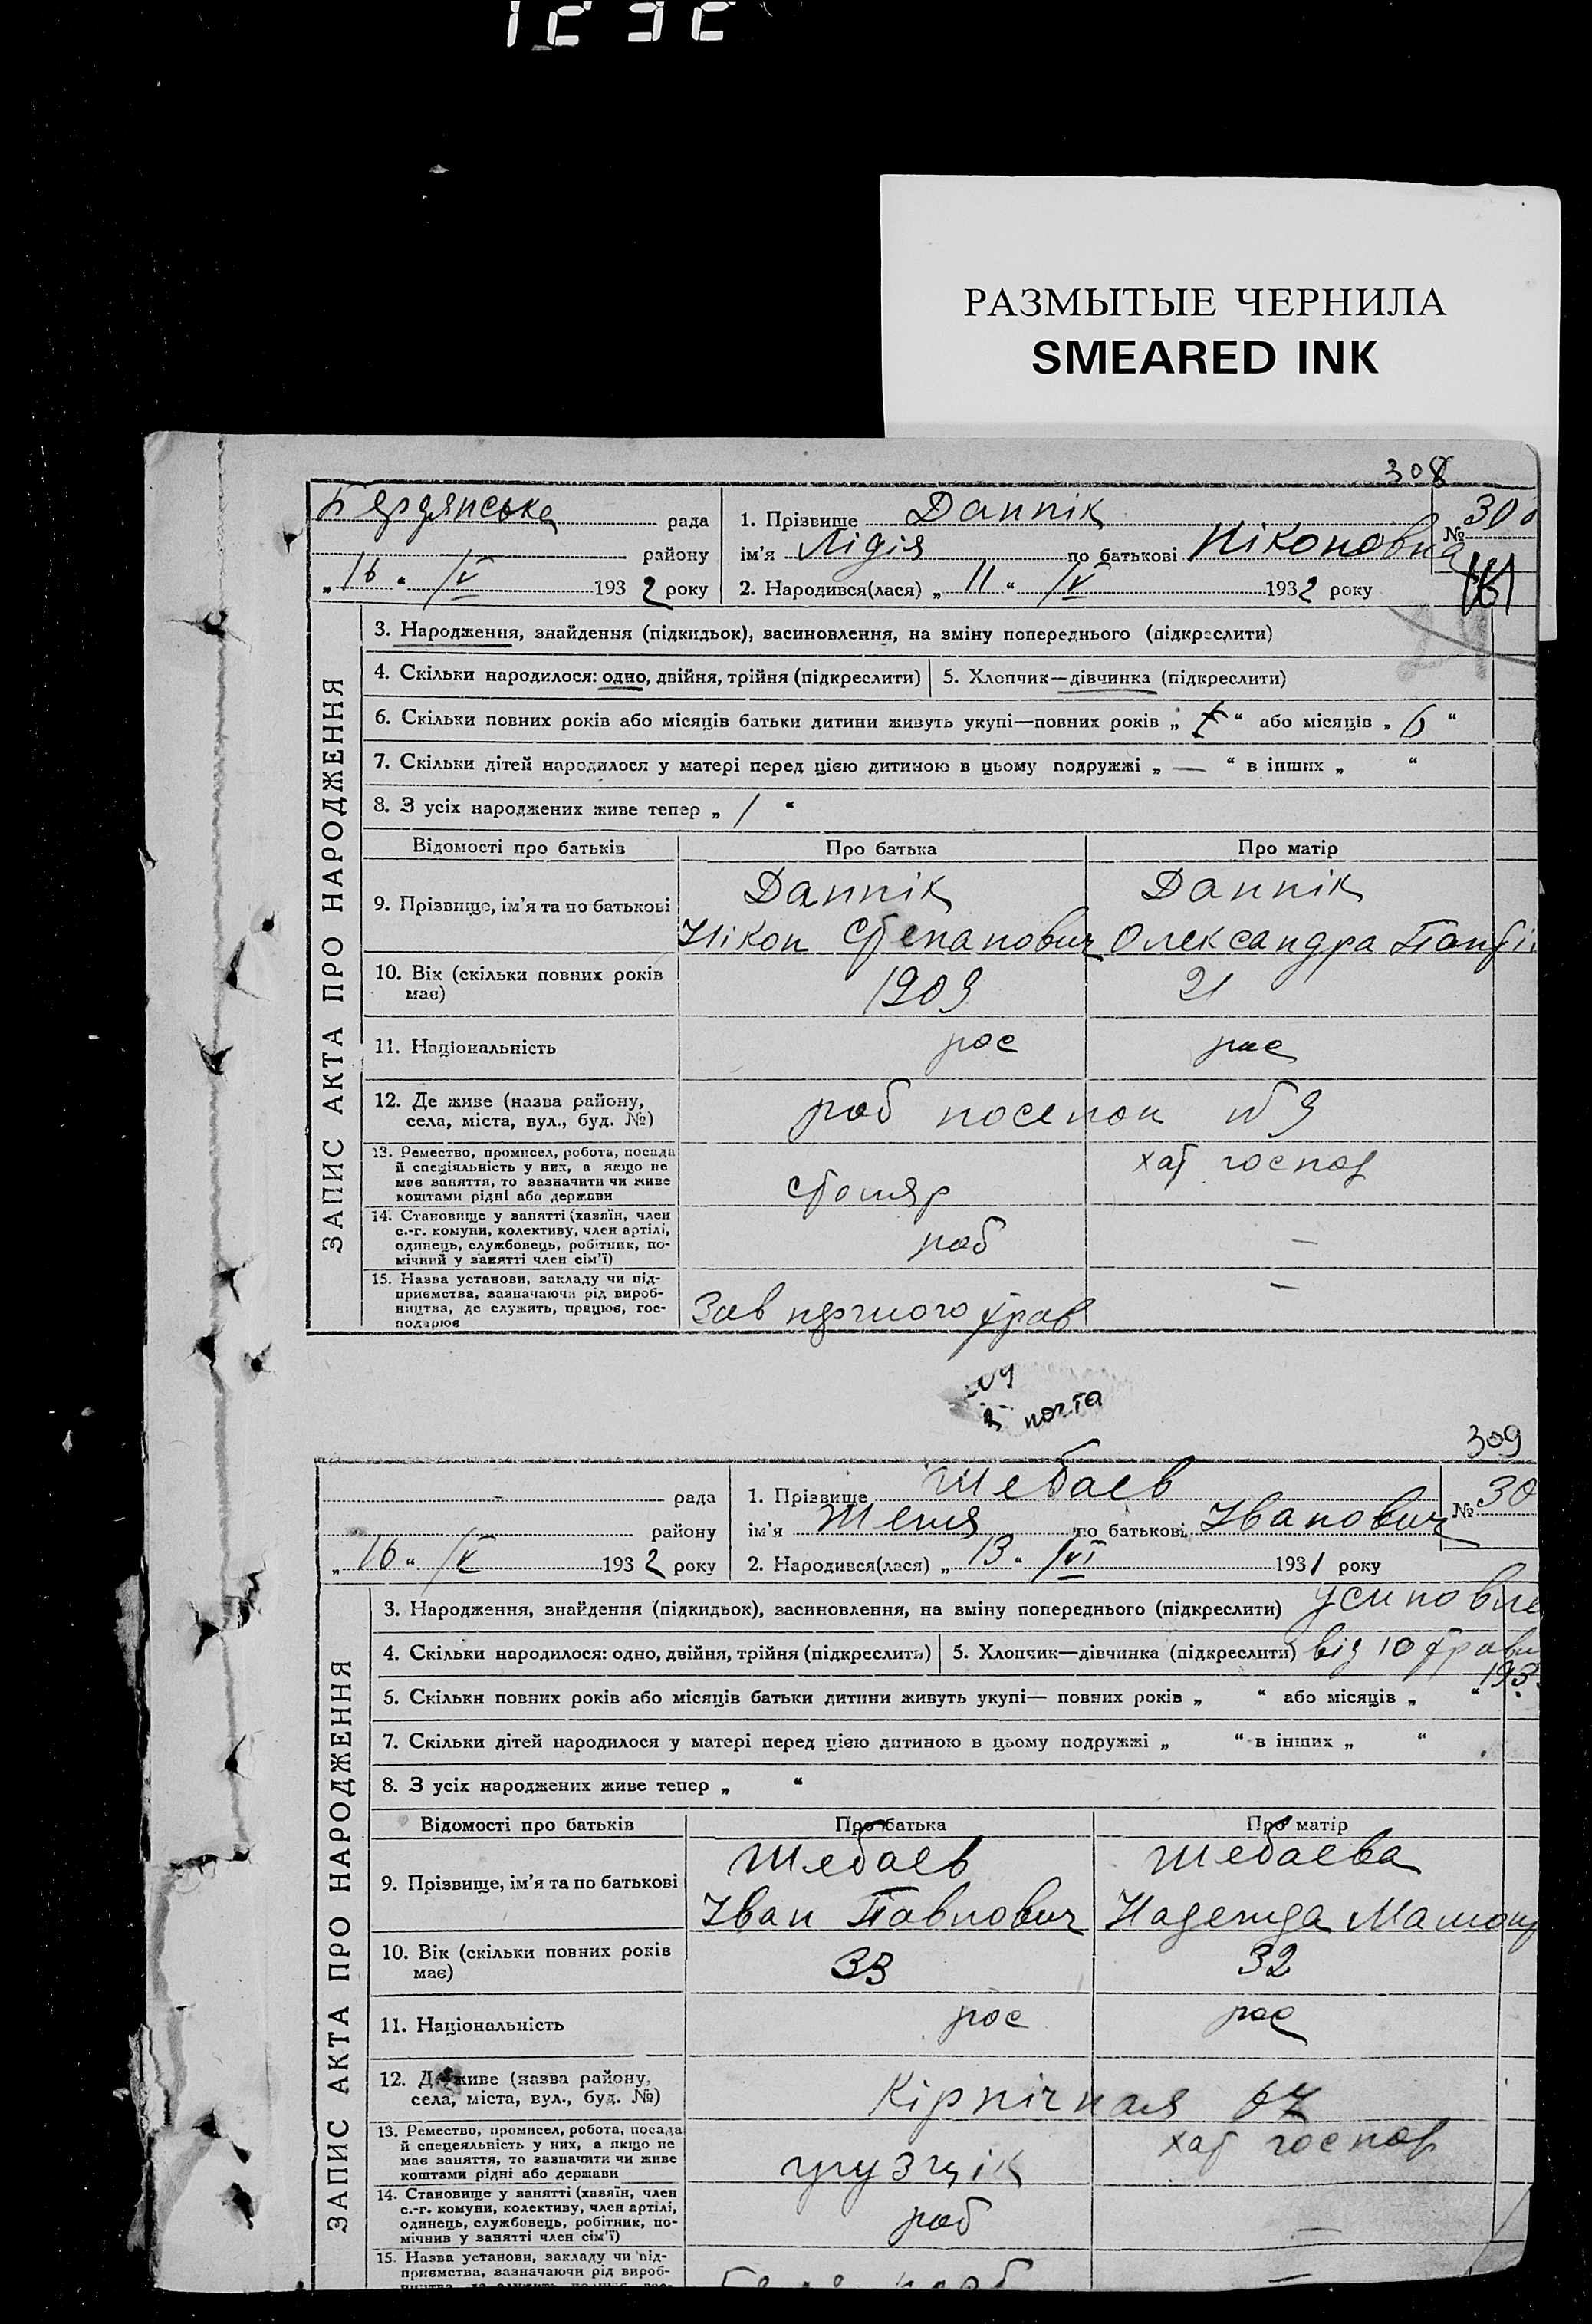 1232
РАЗМЫТЫЕ ЧЕРНИЛА
SMEARED INK
308
Бердянська рада
району
„16“ IV 1932 року
1. Прізвище Данник
№ 30
ім'я Лідія по батькові Ніконовна
2. Народився(лася) „11“ IV 1932 року
ЗАПИС АКТА ПРО НАРОДЖЕННЯ
3. Народження, знайдення (підкидьок), засиновлення, на зміну попереднього (підкреслити)
4. Скільки народилося: одно, двійня, трійня (підкреслити) 5. Хлопчик—дівчинка (підкреслити)
6. Скільки повних років або місяців батьки дитини живуть укупі—повних років „ “ або місяців „ “
7. Скільки дітей народилося у матері перед цією дитиною в цьому подружжі „ — “ в інших „ “
8. З усіх народжених живе тепер „ 1 “
Відомості про батьків Про батька Про матір
9. Прізвище, ім'я та по батькові
Даннік Даннік
Нікон Степанович Олександра
10. Вік (скільки повних років
має)
1909 21
11. Національність рос рос
12. Де живе (назва району,
села, міста, вул., буд. №)
роб поселок № 9
13. Ремество, промисел, робота, посада
й спеціяльність у них, а якщо не
має заняття, то зазначити чи живе
коштами рідні або держави
столяр хат господ
14. Становище у занятті (хазяїн, член
с.-г. комуни, колективу, член артілі,
одинець, службовець, робітник, по-
мічний у занятті член сім'ї)
роб —
15. Назва установи, закладу чи під-
приємства, зазначаючи рід вироб-
ництва, де служить, працює, гос-
подарює
Зав —
почта
309
рада
району
„16“ IV 1932 року
1. Прізвище Шебаев
№ 30
ім'я Женя по батькові Иванович
2. Народився(лася) „13“ VI 1931 року
ЗАПИС АКТА ПРО НАРОДЖЕННЯ
3. Народження, знайдення (підкидьок), засиновлення, на зміну попереднього (підкреслити) усиновле
4. Скільки народилося: одно, двійня, трійня (підкреслить) 5. Хлопчик—дівчинка (підкреслити) від 10 травн
193
6. Скільки повних років або місяців батьки дитини живуть укупі— повних років „ “ або місяців „ “
7. Скільки дітей народилося у матері перед цією дитиною в цьому подружжі „ “ в інших „ “
8. З усіх народжених живе тепер „ “
Відомості про батьків Про батька Про матір
9. Прізвище, ім'я та по батькові
Шебаев Шебаева
Иван Павлович Надежда
10. Вік (скільки повних років
має)
33 32
11. Національність рос рос
12. Де живе (назва району,
села, міста, вул., буд. №)
Кірпічная 67
13. Ремество, промисел, робота, посада
й спецеяльність у них, а якщо не
має заняття, то зазначити чи живе
коштами рідні або держави
грузчік хат господ
14. Становище у занятті (хазяїн, член
с.-г. комуни, колективу, член артілі,
одинець, службовець, робітник, по-
мічнив у занятті член сім'ї)
роб —
15. Назва установи, закладу чи під-
приємства, зазначаючи рід вироб-